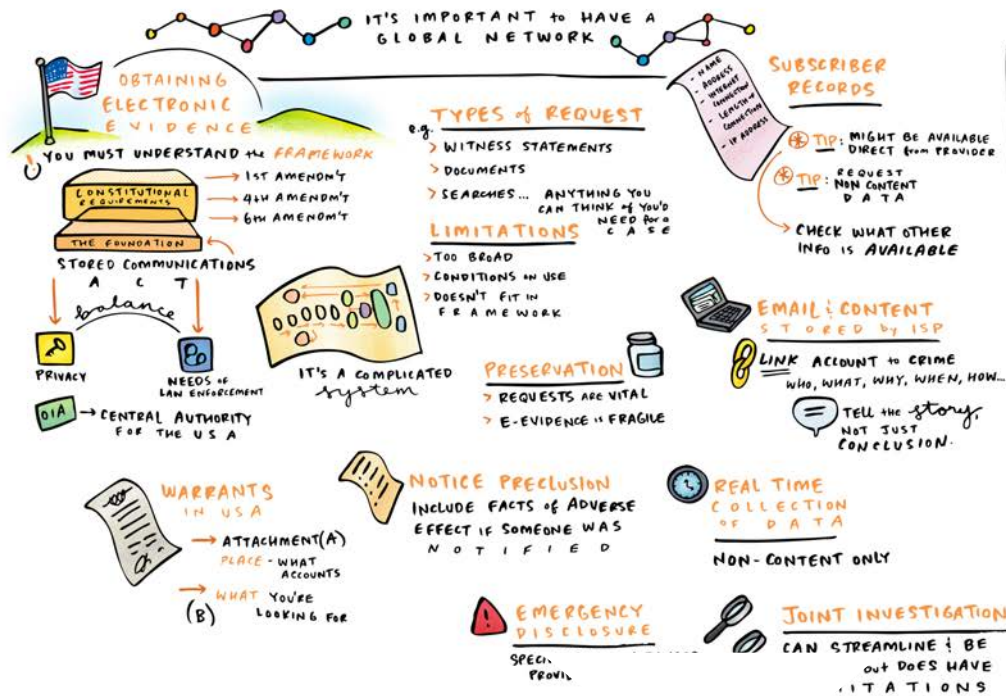 IT'S IMPORTANT to HAVE A
GLOBAL NETWORK
OBTAINING
ELECTRONIC
EVIDENCE
! YOU MUST UNDERSTAND the FRAMEWORK
CONSTITUTIONAL
REQUIREMENTS
→ 1ST AMENDM'T
→ 4TH AMENDM'T
→ 6TH AMENDM'T
THE FOUNDATION
STORED COMMUNICATIONS
ACT
balance
PRIVACY
NEEDS OF
LAW ENFORCEMENT
OIA → CENTRAL AUTHORITY
FOR THE USA
TYPES of REQUEST
e.g.
> WITNESS STATEMENTS
> DOCUMENTS
> SEARCHES... ANYTHING YOU
CAN THINK of YOU'D
NEED for a
CASE
LIMITATIONS
> TOO BROAD
> CONDITIONS ON USE
> DOESN'T FIT IN
FRAMEWORK
IT'S A COMPLICATED
system
PRESERVATION
> REQUESTS ARE VITAL
> E-EVIDENCE is FRAGILE
SUBSCRIBER
RECORDS
- NAME
- ADDRESS
- INTERNET
CONNECTION
- LENGTH of
CONNECTION
- IP ADDRESS
* TIP: MIGHT BE AVAILABLE
DIRECT from PROVIDER
* TIP: REQUEST
NON CONTENT
DATA
CHECK WHAT OTHER
INFO is AVAILABLE
EMAIL & CONTENT
STORED by ISP
LINK ACCOUNT to CRIME
WHO, WHAT, WHY, WHEN, HOW...
TELL the story,
NOT JUST
CONCLUSION.
WARRANTS
IN USA
→ ATTACHMENT (A)
PLACE - WHAT
ACCOUNTS
→ WHAT YOU'RE
(B) LOOKING FOR
NOTICE PRECLUSION
INCLUDE FACTS of ADVERSE
EFFECT IF SOMEONE WAS
NOTIFIED
REAL TIME
COLLECTION
OF DATA
NON-CONTENT ONLY
EMERGENCY
DISCLOSURE
JOINT INVESTIGATION
CAN STREAMLINE & BE
DOES HAVE